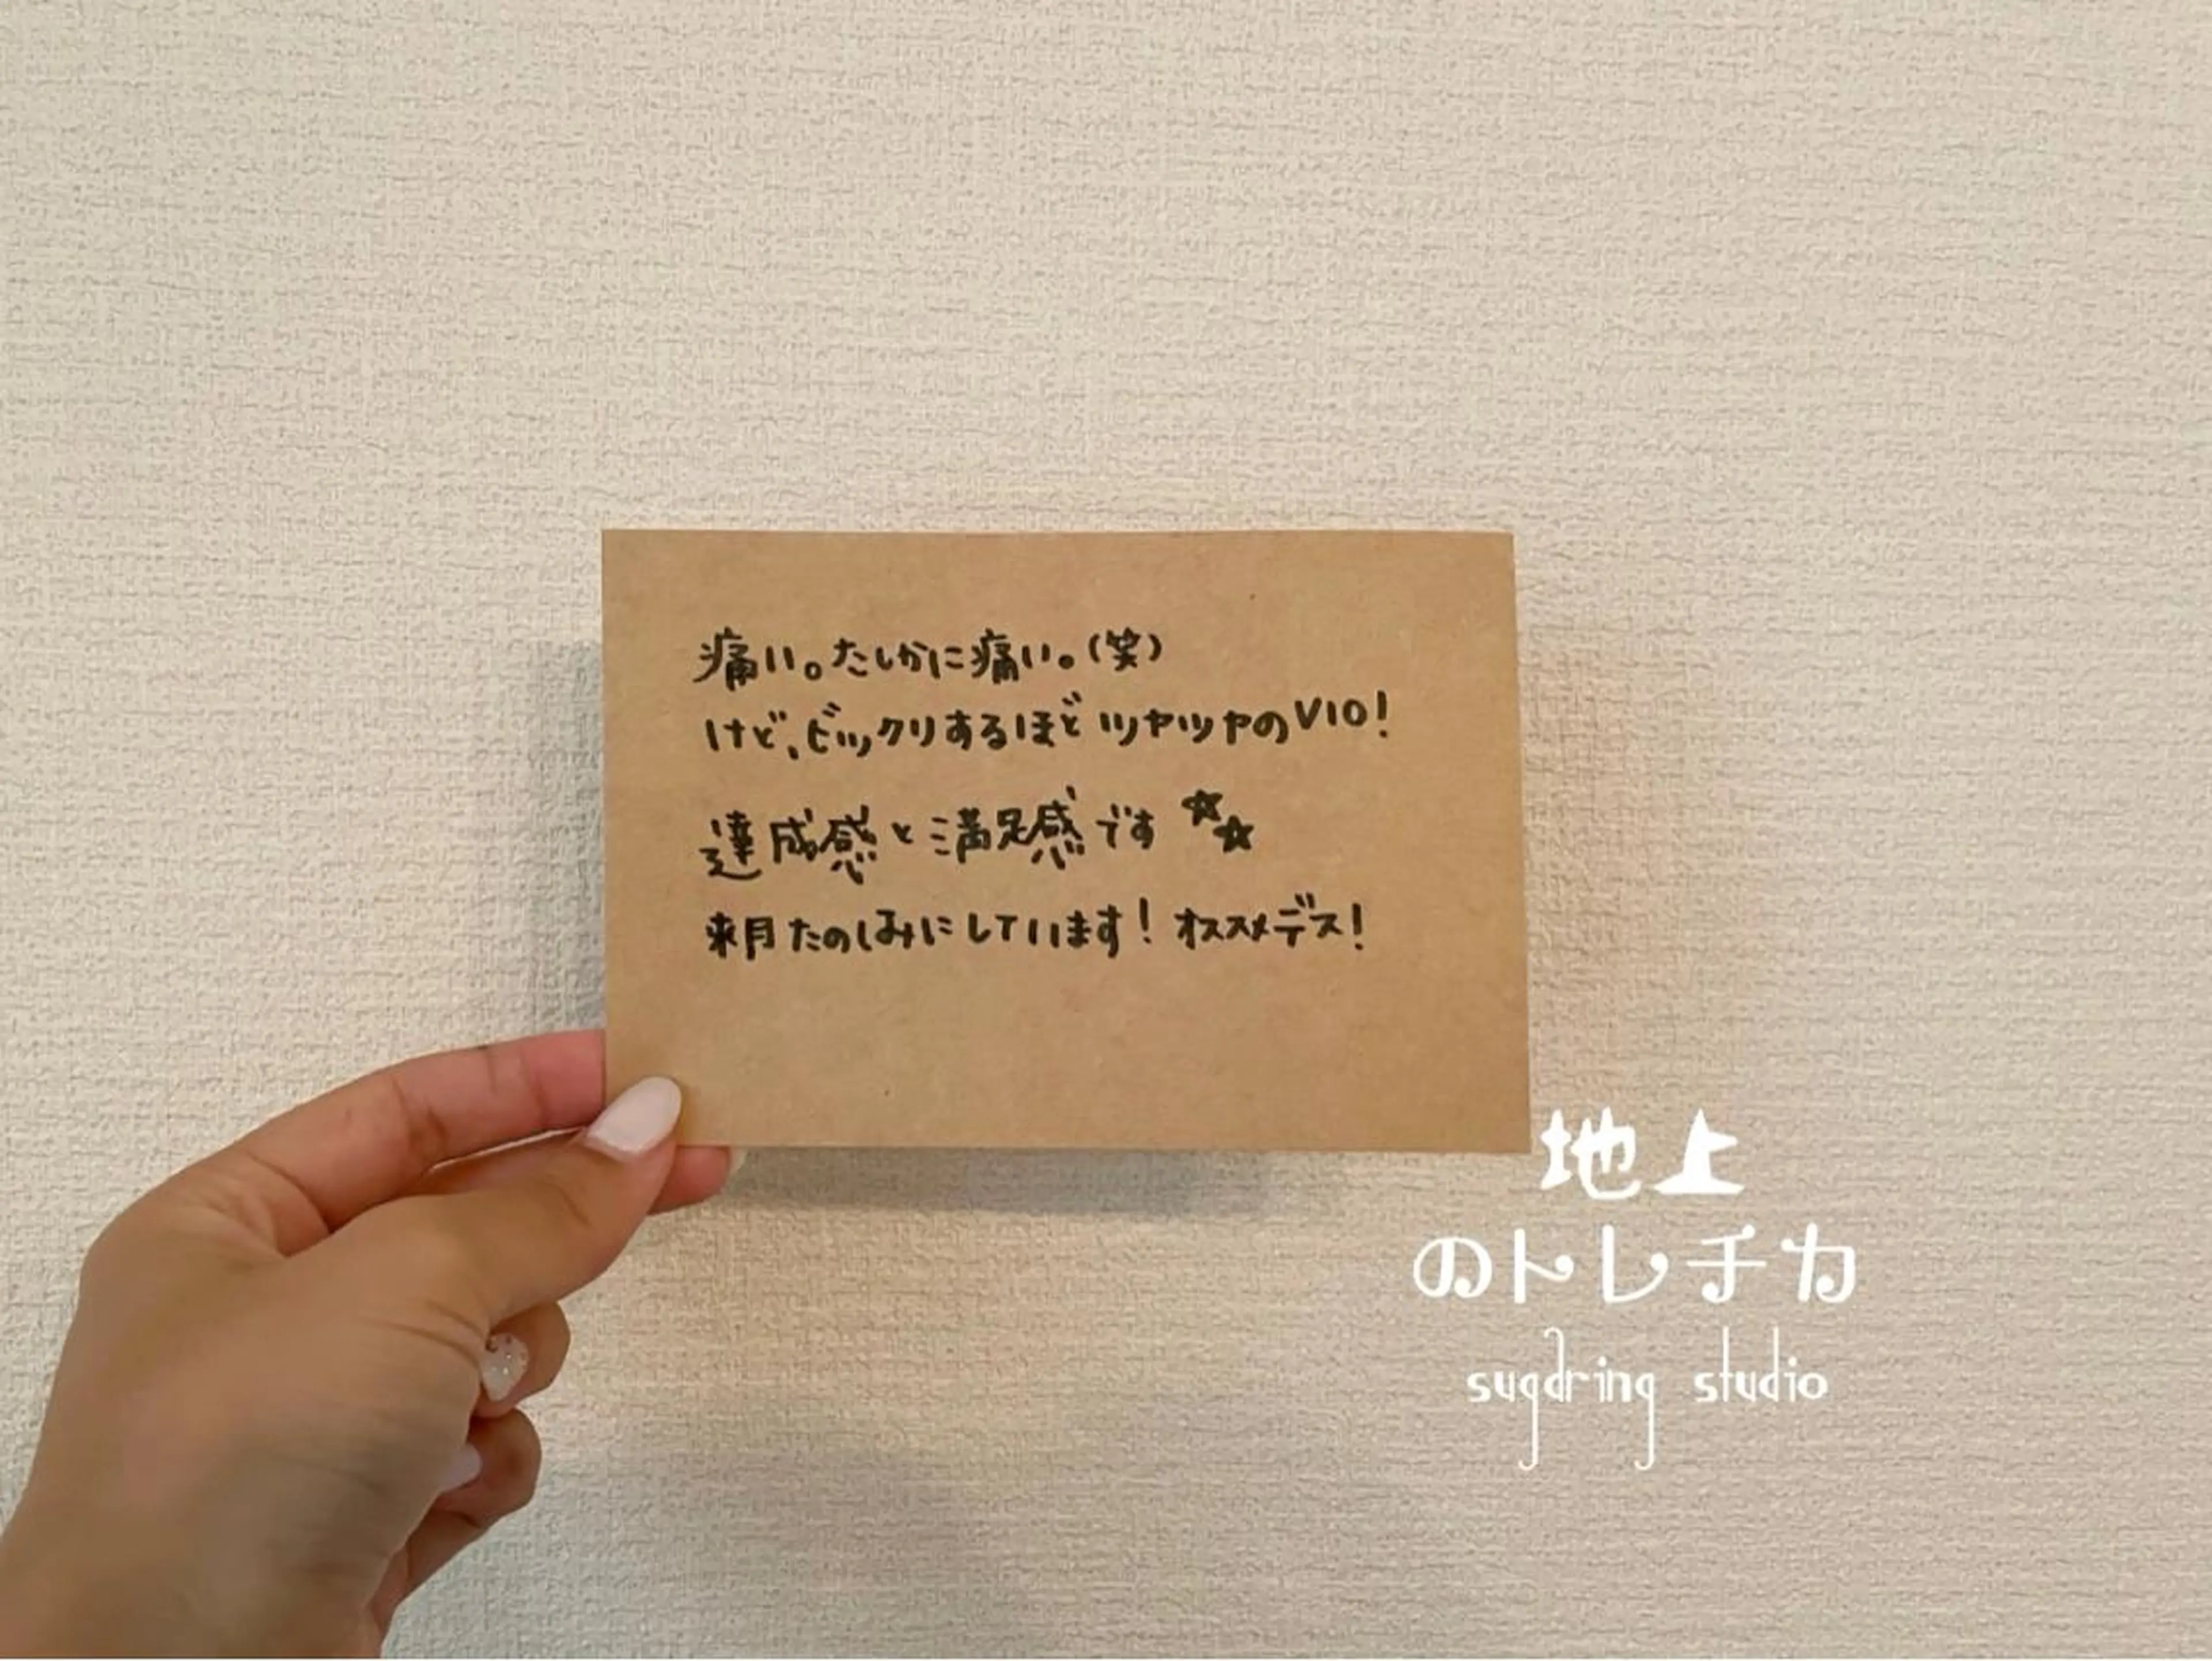 痛い。たしかに痛い。(笑)
けど、ビックリするほどツヤツヤのVIO!
達成感と満足感です☆☆
来月たのしみにしています! オススメデス!
地上
のトレチカ
sugdring studio